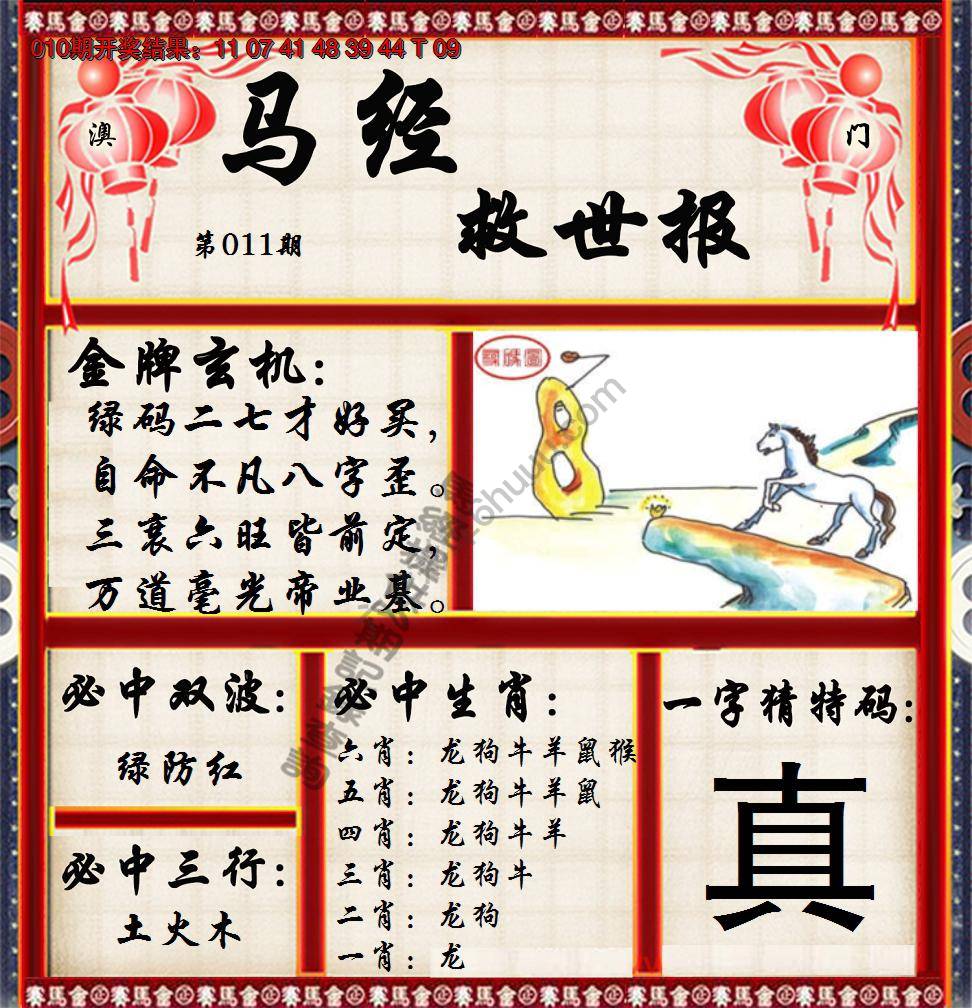 赛馬會
010期开奖结果：11 07 41 48 39 44 T 09
澳
门
马经
救世报
第011期
金牌玄机：
绿码二七才好买，
自命不凡八字歪。
三衰六旺皆前定，
万道毫光帝业基。
必中双波：
绿防红
必中三行：
土火木
必中生肖：
六肖：龙狗牛羊鼠猴
五肖：龙狗牛羊鼠
四肖：龙狗牛羊
三肖：龙狗牛
二肖：龙狗
一肖：龙
一字猜特码：
真